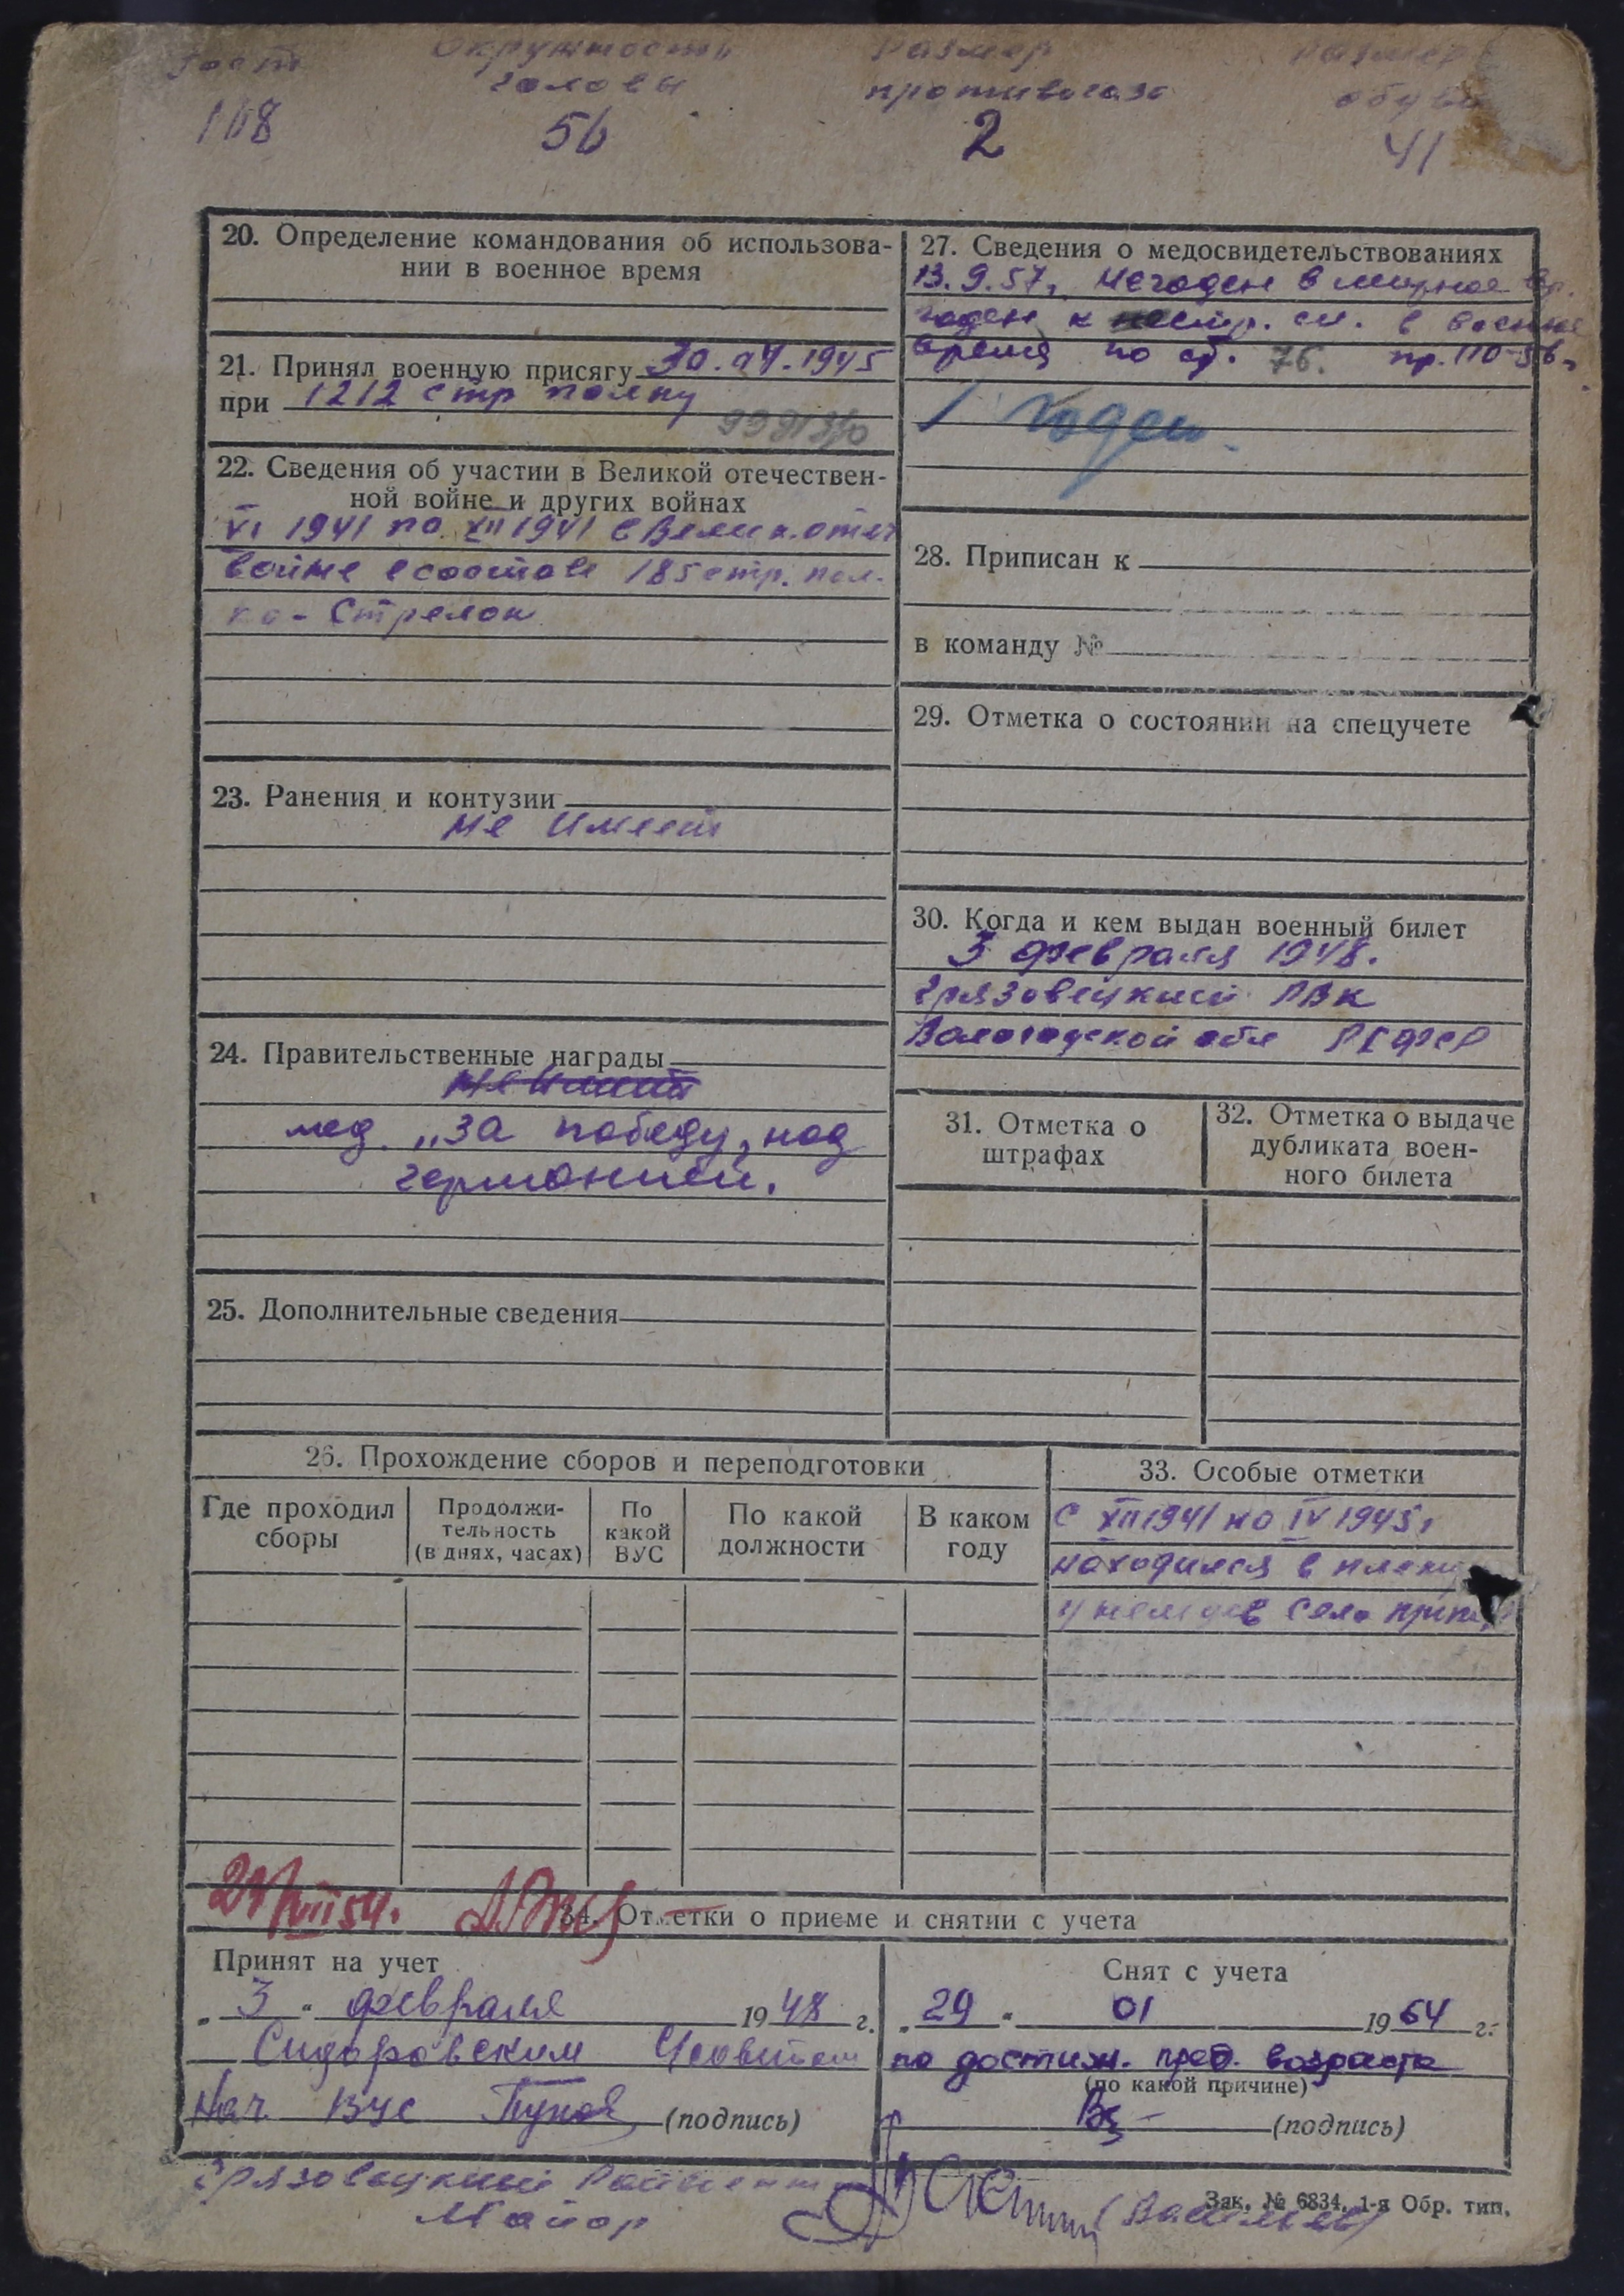 Рост Окружность Размер Размер
головы противогаза обуви
168 56 2 41
20. Определение командования об использова-
нии в военное время
21. Принял военную присягу 30.04.1945
при 1212 стр полку
22. Сведения об участии в Великой отечествен-
ной войне и других войнах
VI 1941 по XII 1941 в Велик. отеч
войне в составе 185 стр. пол-
ка - Стрелок
23. Ранения и контузии
не имеет
24. Правительственные награды
не имеет
мед. „За победу, над
германией.
25. Дополнительные сведения
27. Сведения о медосвидетельствованиях
13.9.57г. Негоден в мирное вр.
годен к нестр. сл. в военное
время по ст. 76. пр. 110-56г.
годен
28. Приписан к
в команду №
29. Отметка о состоянии на спецучете
30. Когда и кем выдан военный билет
3 февраля 1948.
Грязовецкий РВК
Вологодской обл РСФСР
31. Отметка о
штрафах
32. Отметка о выдаче
дубликата воен-
ного билета
26. Прохождение сборов и переподготовки
Где проходил
сборы
Продолжи-
тельность
(в днях, часах)
По
какой
ВУС
По какой
должности
В каком
году
33. Особые отметки
С XII 1941 по IV 1945г
находился в плену
у немцев село
VIII 54.
34. Отметки о приеме и снятии с учета
Принят на учет
„ 3 " февраля 1948 г.
Сидоровским
Нач ВУС (подпись)
Снят с учета
„ 29 " 01 1964 г.
по достиж. пред. возраста
(по какой причине)
(подпись)
Грязовецкий
Майор
Зак. № 6834. 1-я Обр. тип.